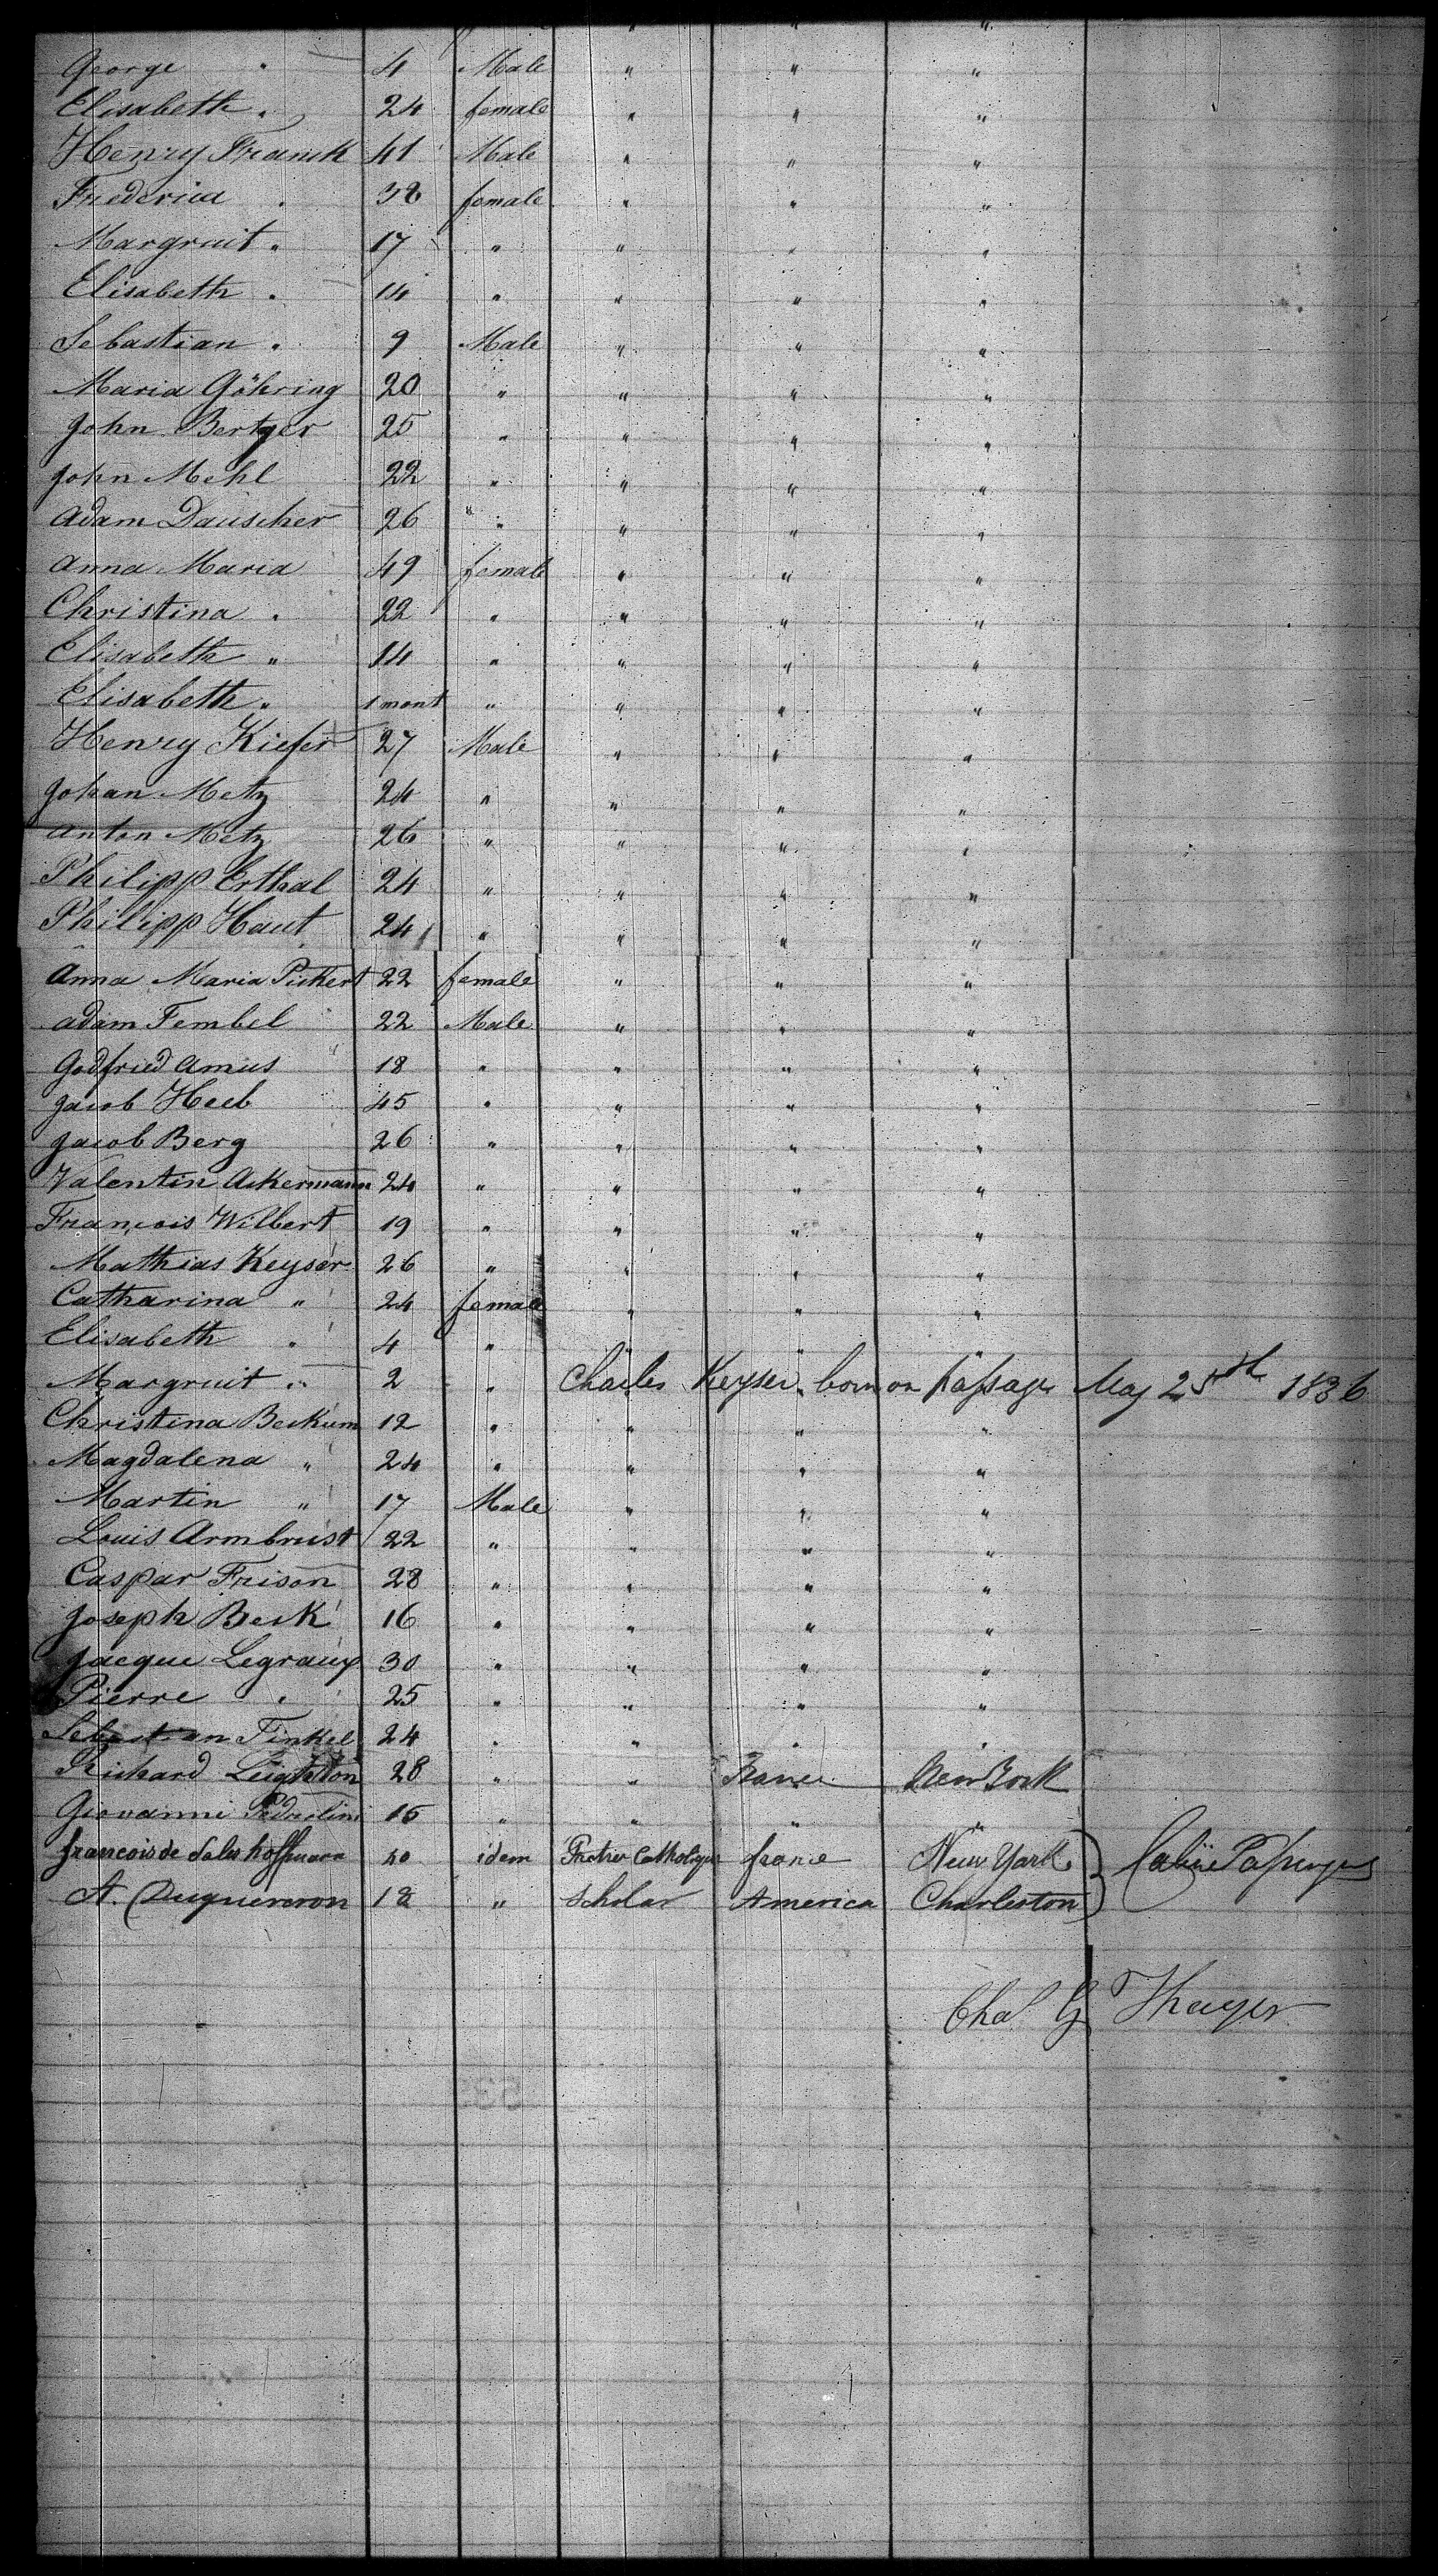 " " " "
George " 4 Male " " "
Elisabeth " 24 female " " "
Henry Franck 41 Male " " "
Fredericia " 38 female " " "
Margruit " 17 " " " "
Elisabeth " 14 " " " "
Sebastian " 9 Male " " "
Maria Göhring 20 " " " "
John Bertger 25 " " " "
John Mehl 22 " " " "
Adam Dauscher 26 " " " "
Anna Maria 49 female " " "
Christina " 22 " " " "
Elisabeth " 14 " " " "
Elisabeth " 1 mont " " " "
Henry Kiefer 27 Male " " "
Johan Metz 24 " " " "
Anton Metz 26 " " " "
Philipp Erthal 24 " " " "
Philipp Haut 24 " " " "
Anna Maria Pickert 22 female " " "
Adam Fembel 22 Male " " "
Godfried Amus 18 " " " "
Jacob Heeb 45 " " " "
Jacob Berg 26 " " " "
Valentin Ackermann 24 " " " "
François Wilbert 19 " " " "
Mathias Keyser 26 " " " "
Catharina " 24 female " " "
Elisabeth " 4 " " " "
Margruit " 2 " Charles Keyser born on passage May 25th 1836
Christina Beckum 12 " " " "
Magdalena " 24 " " " "
Martin " 17 Male " " "
Louis Armbrust 22 " " " "
Caspar Frison 28 " " " "
Joseph Beck 16 " " " "
Jacque Legraux 30 " " " "
Pierre " 25 " " " "
Sebastian Finkel 24 " " " "
Richard Leighton 28 " " France New York
Giovanni 15 " " " "
francois de Sales hoffmann 40 idem Pretre Catholique france New York
A. 18 " Scholar America Charleston
Cha! G Thayer